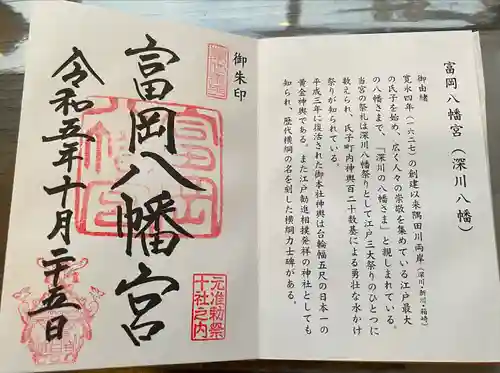 富岡八幡宮（深川八幡）
御由緒
寛永四年（一六二七）の創建以来隅田川両岸（深川・新川・箱崎）
の氏子を始め、広く人々の崇敬を集めている江戸最大
の八幡さまで、「深川の八幡さま」と親しまれている。
当宮の祭礼は深川八幡祭りとして江戸三大祭りのひとつに
数えられ、氏子町内神輿百二十数基による勇壮な水かけ
祭りが知られている。
平成三年に復活された御本社神輿は台輪幅五尺の日本一の
黄金神輿である。また江戸勧進相撲発祥の神社としても
知られ、歴代横綱の名を刻した横綱力士碑がある。
御朱印
富岡八幡宮
元准勅祭
十社之内
令和五年十月二十五日